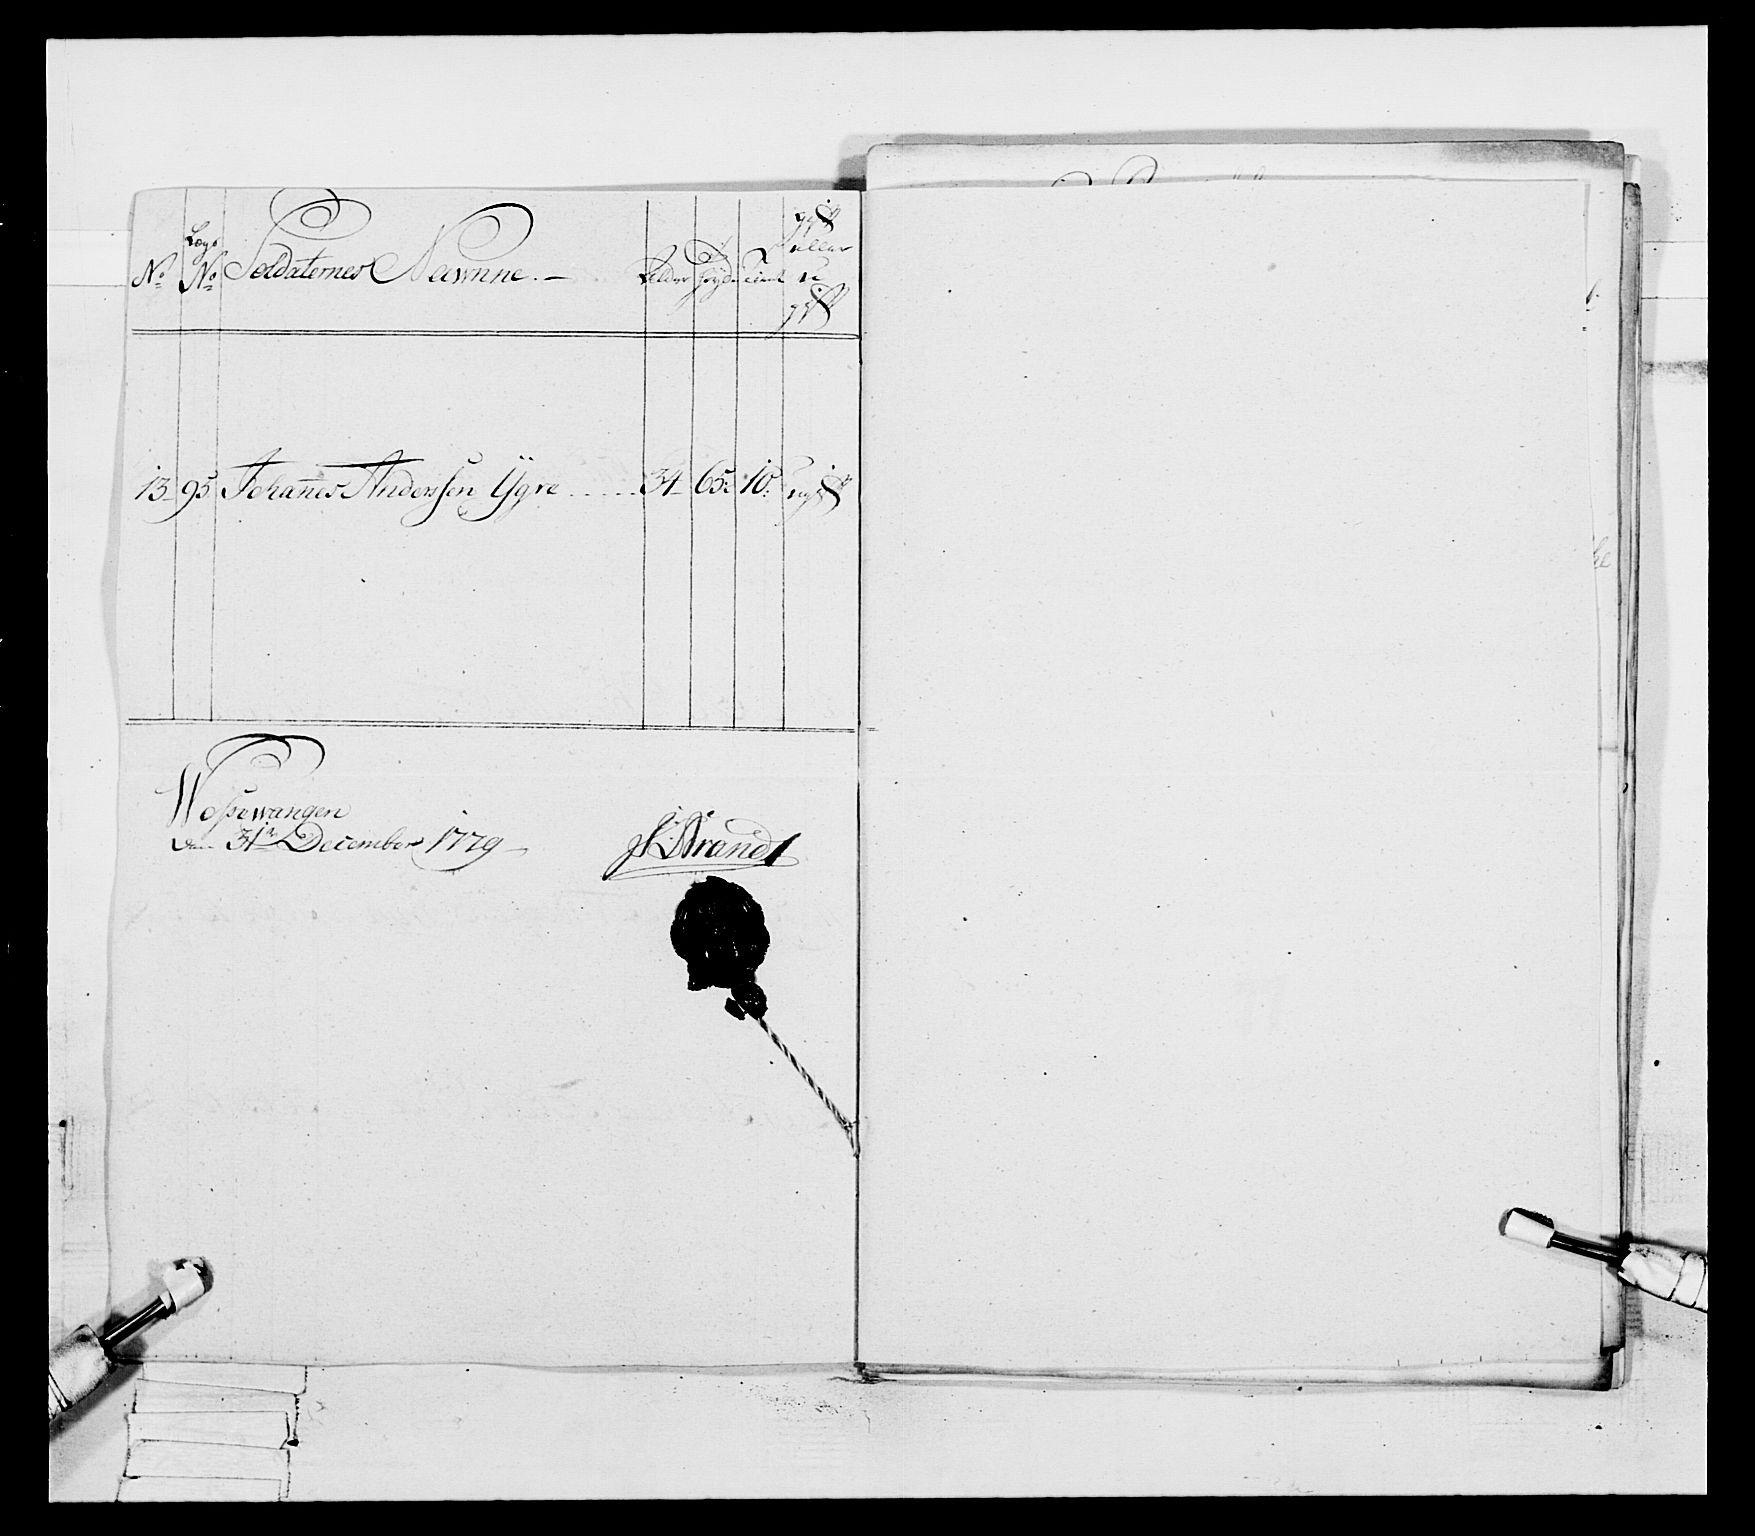 No Lægs No Soldaternes Nawnne. — Alder Høyde Tienst gift eller u gift
13 95 Johannes Anderssen Ygre ...... 34 65 10 ugift
Wossewangen
den 31te December 1779
Brandt